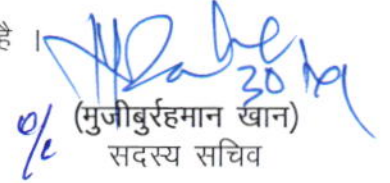 है ।
(मुजीबुर्रहमान खान)
सदस्य सचिव